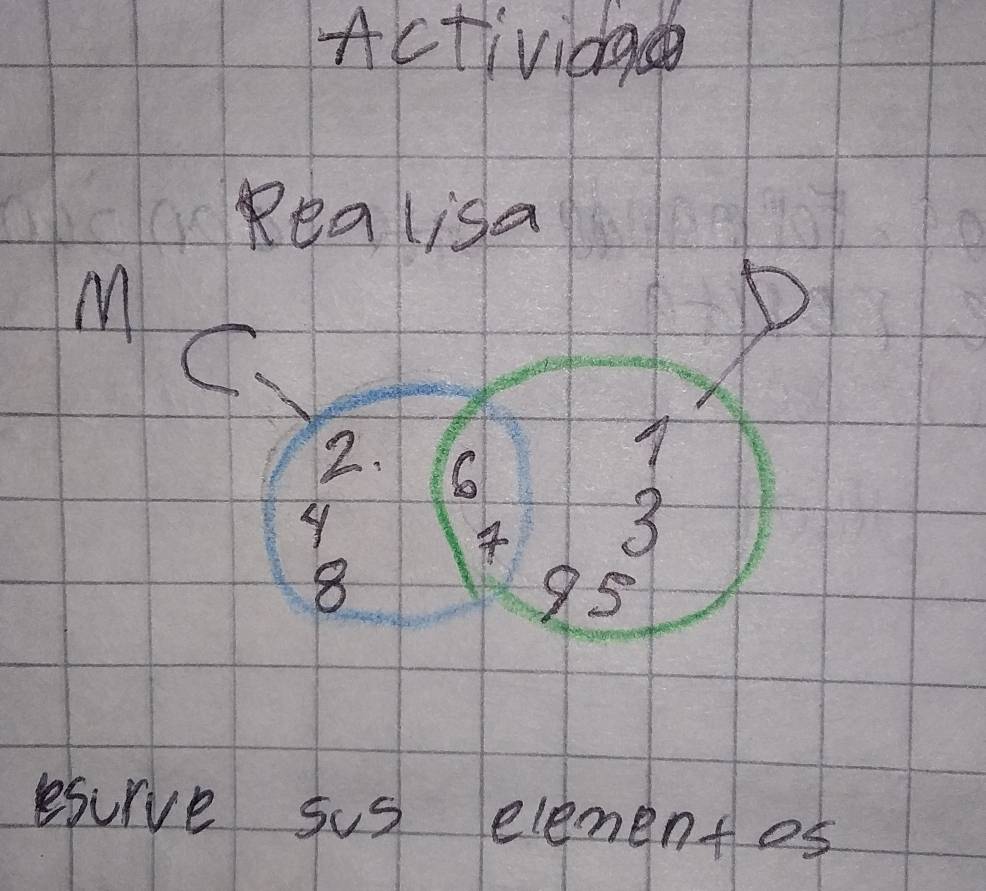 Actividad
Realisa
M
C D
2. 6 1
4 7 3
8 9 5
escrive sus elementos